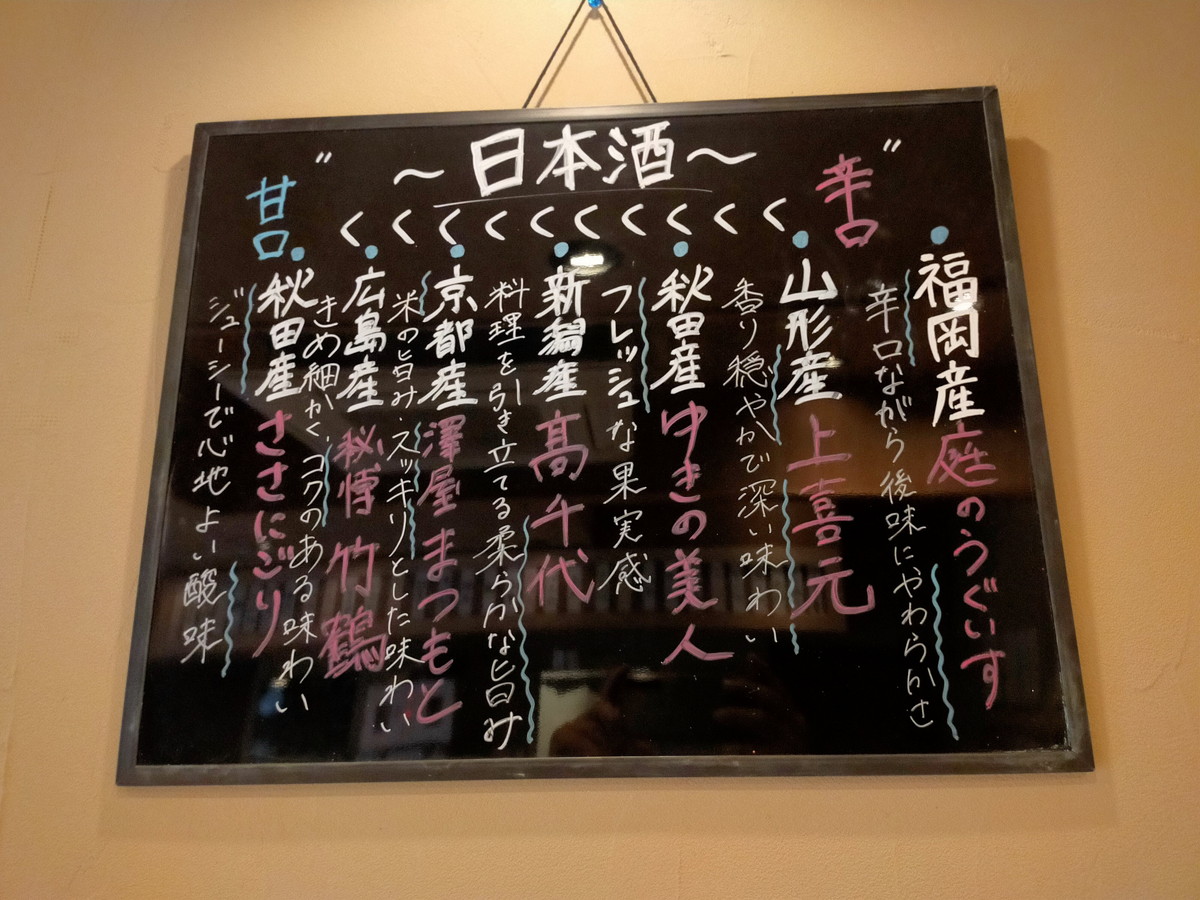 ～日本酒～
"辛口"
くくくくくくくくくく
"甘口"
・福岡産 庭のうぐいす
辛口ながら後味にやわらかさ
・山形産 上喜元
香り穏やかで深い味わい
・秋田産 ゆきの美人
フレッシュな果実感
・新潟産 髙千代
料理を引き立てる柔らかな旨み
・京都産 澤屋まつもと
米の旨み、スッキリとした味わい
・広島産 秘傳 竹鶴
きめ細かく、コクのある味わい
・秋田産 ささにごり
ジューシーで心地よい酸味